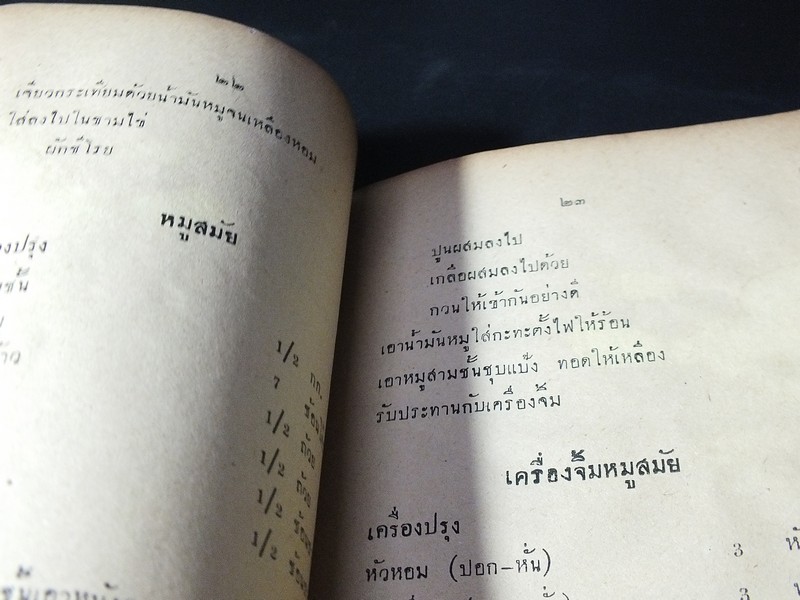 ๒๒
เจียวกระเทียมด้วยน้ำมันหมูจนเหลืองหอม
ใส่ลงไปในชามใช่
ผักชีโรย
หมูสมัย
องปรุง
ชั้น
1/2 กก.
7 ช้อน
1/2 ถ้วย
1/2 ถ้วย
1/2 ช้อน
1/2 ช้อน
๒๓
ปูนผสมลงไป
เกลือผสมลงไปด้วย
กวนให้เข้ากันอย่างดี
เอาน้ำมันหมูใส่กะทะตั้งไฟให้ร้อน
เอาหมูสามชั้นชุบแป้ง ทอดให้เหลือง
รับประทานกับเครื่องจิ้ม
เครื่องจิ้มหมูสมัย
เครื่องปรุง
หัวหอม (ปอก-หั่น) 3 หั
3